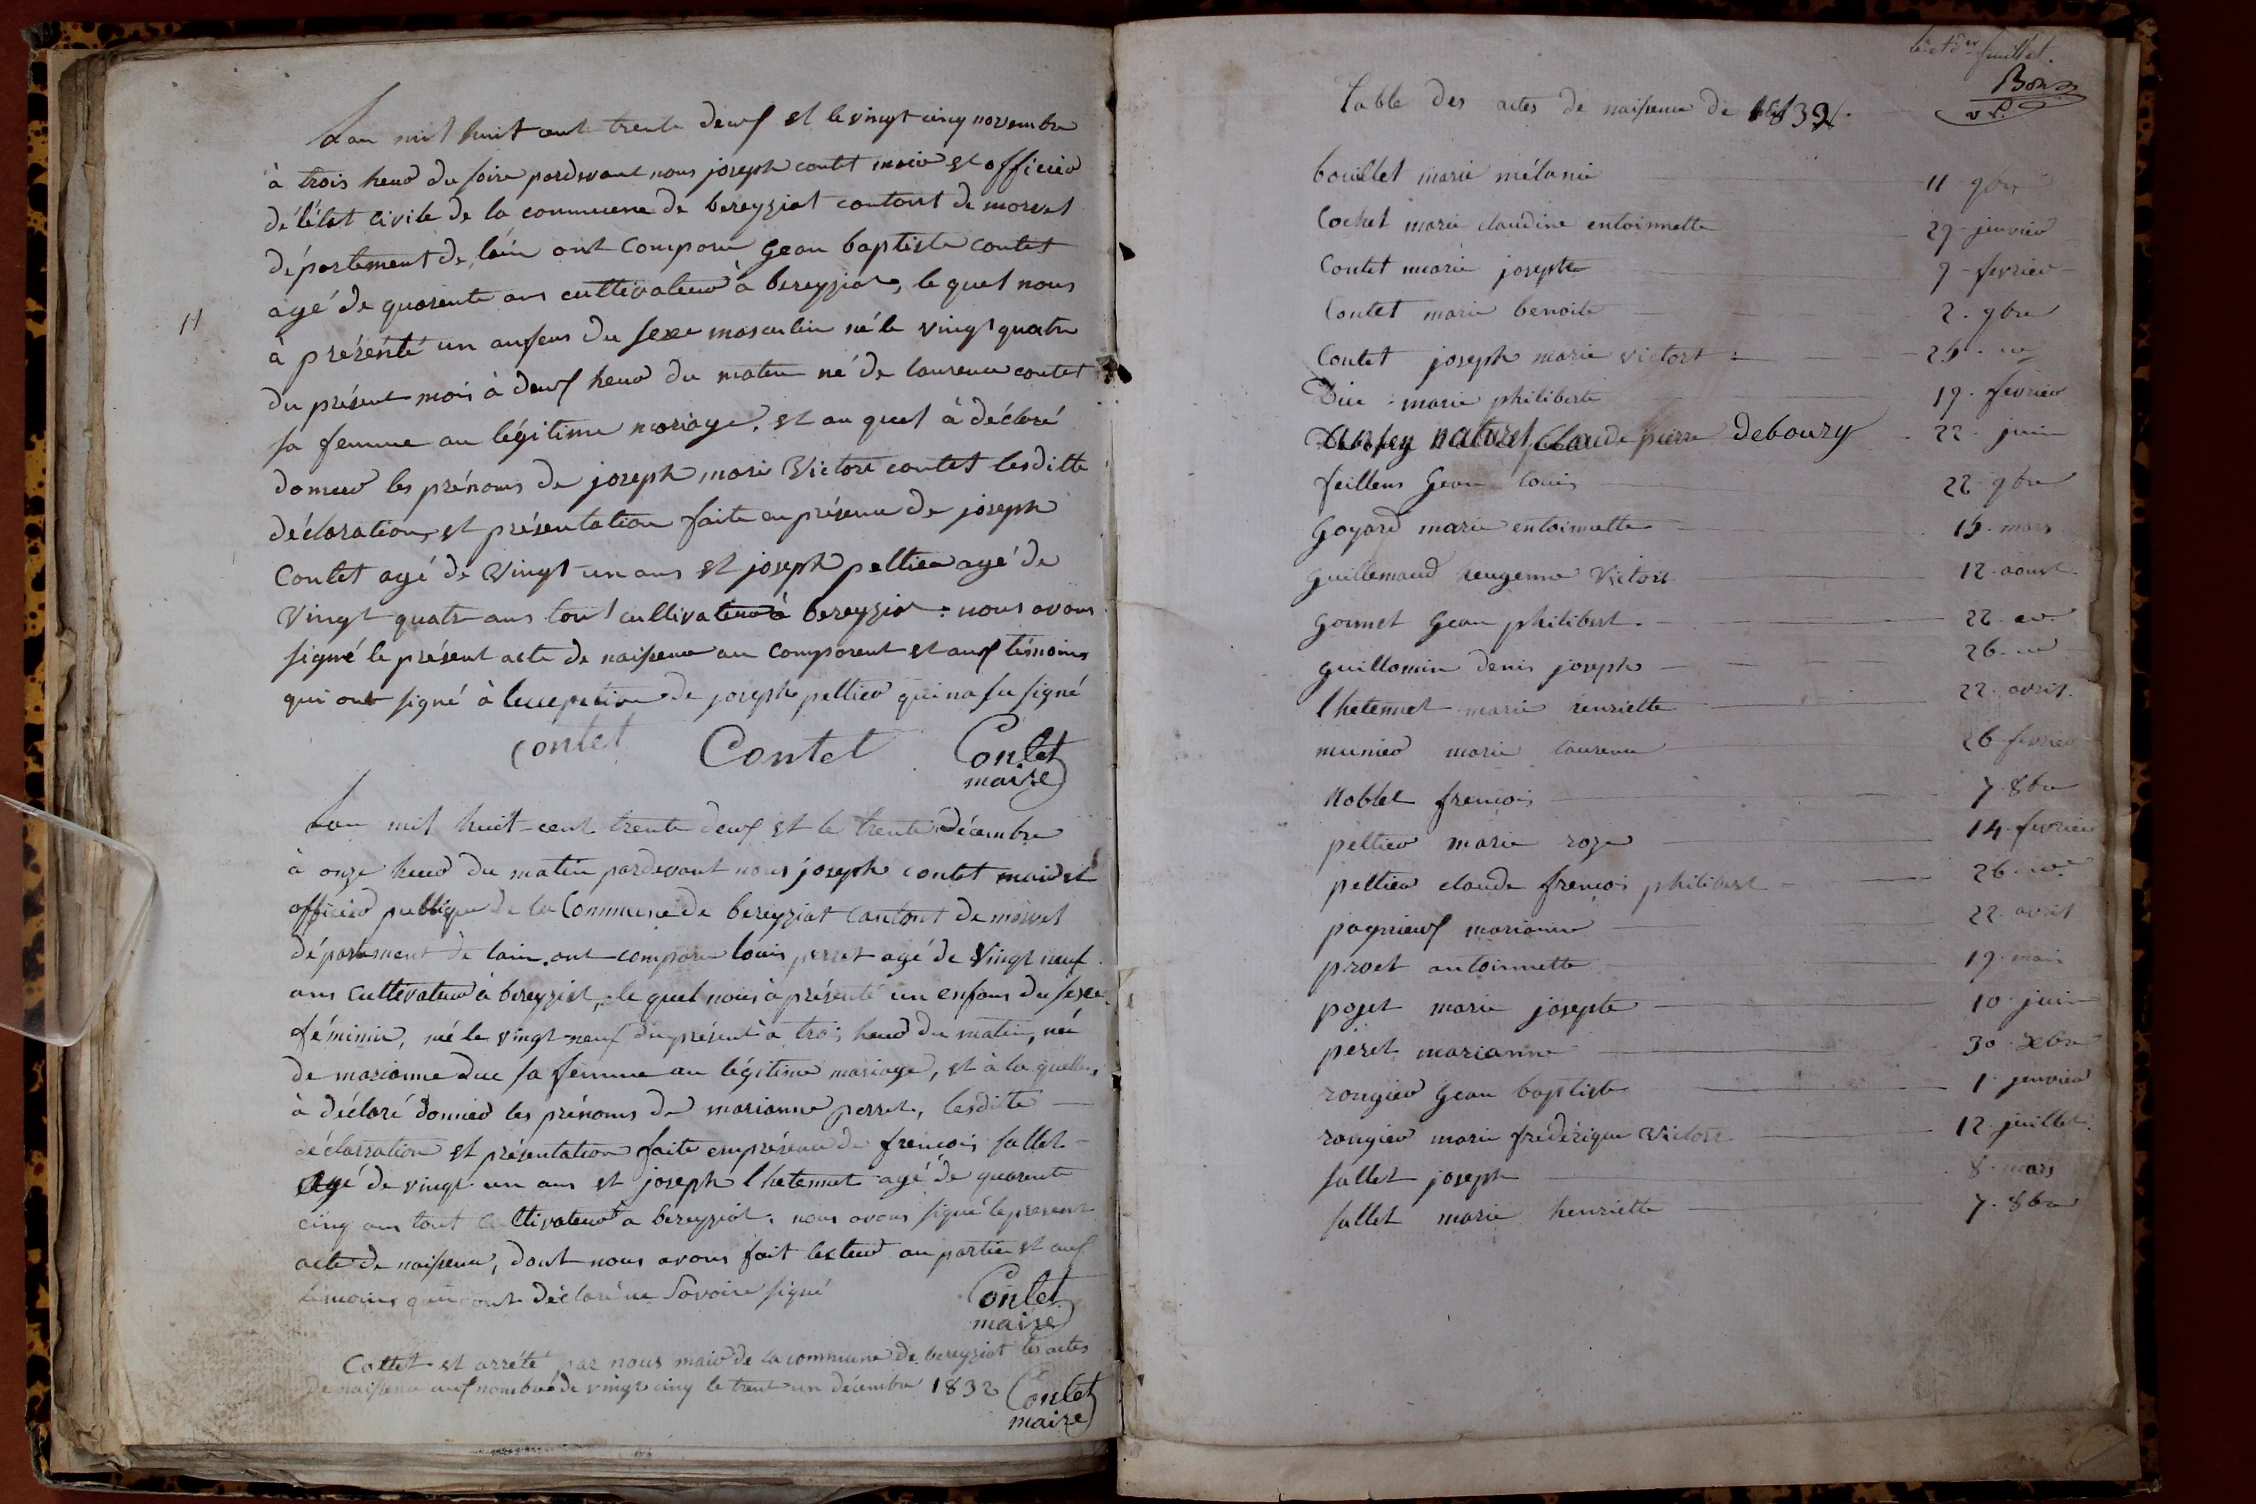 Lan mil huit cent trente deuf et le vingt cinq novembre
à trois heur du soire pardevant nous joseph contet maire et officier
de létat civile de la commune de bereyziat cantont de
département de lain ont comparu Gean baptiste contet
agé de quarente ans cultivateur à bereyziat, le quel nous
11
à présénté un anfans du sexe masculin né le vingt quatre
du présent mois à deuf heur du matin né de laurence contet
sa femme an légitime mariage, et au quel à déclaré
donner les prénoms de joseph marie Victort contet lesditte
déclaration, et présentation faite en présence de joseph
Contet agé de Vingt un ans et joseph peltier agé de
Vingt quatre ans tout cultivateur à bereyziat : nous avons
signé le présent acte de naissence au comparent et auf témoins
qui ont signé à lexception de joseph peltier qui na su signé
contet Contet Contet
maire
Lan mil huit-cent trente deuf et le trente décembre
à onze heur du matin pardevant nous joseph contet maire et
officier publique de la Commune de bereyziat cantont de
département de lain, ont comparu louis perret agé de Vingt neuf
ans cultivateur à bereyziat, le quel nous à présenté un enfans du sexe
féminin, né le vingt-neuf du présent à trois heur du matin, né
de marianne duc sa femme an légitime mariage, et à la quelle,
à déclaré donner les prénoms de marianne perret, lesditte
déclarration et présentation faite en présence de frençois fallet
agé de vingt un ans et joseph lhetennet agé de quarente
cinq ans tout cultivateur a bereyziat ; nous avons signé le present
acte de naissence, dont nous avons fait lecteur au partie et auf
témoins qui ont déclaré ne Savoire signé
Contet
maire
Cottet et arrété par nous maire de la commune de bereyziat les actes
de naissence auf nombre de vingt cinq le trent un décembre 1832 Contet
maire
feuillet.
Table des actes de naissence de 1832.
bouillet marie mélanie 11 9bre
Cochet marie claudine entoinnette 29 jenvier
Contet marie josephte 9 fevrier
Contet marie benoite 2. 9bre
Contet joseph marie victort 25.
Duc marie philiberte 19. fevrier
naturel Claude pierre Debouzy 22 juin
feillens Gean louis 22 9bre
Goyard marie entoinnette 15. mars
Guillemaud heugenne Victort 12 aoust
Gounet Gean philibert. 22.
guillomin denis joseph 26.
lhetennet marie henriette 22. avril
munier marie laurence 26 fevrier
Noblet frençois 7 8bre
peltier marie roze 14. fevrier
peltier claude frençois philibert 26.
pagnieuf marianne 22. avril
proet antoinnette 19.
pozet marie josephte 10 juin
péret marianne 30 xbre
rougier Gean baptiste 1 jenvier
rougier marie fréderique Victort 12 juillet.
fallet joseph 8 mars
fallet marie henriette 7. 8bre